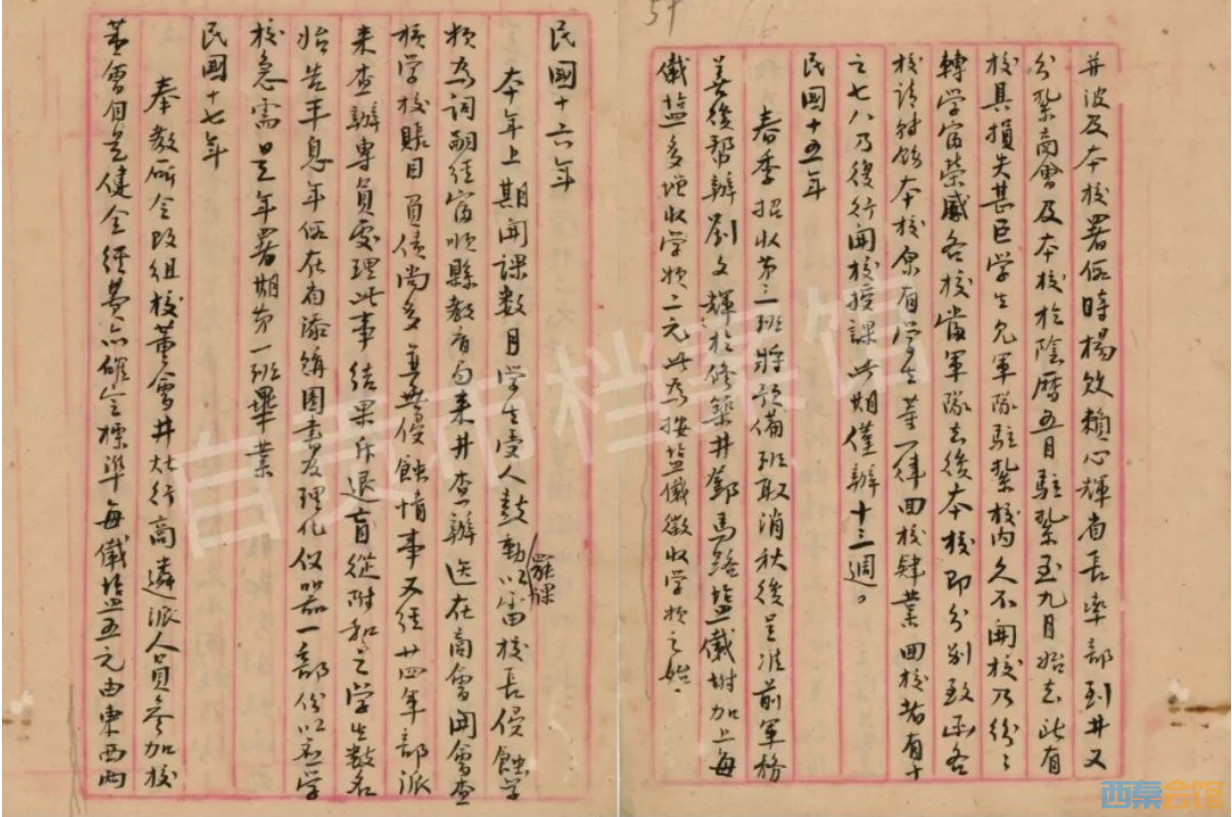 57
66
并波及本校署假時楊效賴心輝省長率部到井又
分紮商會及本校於陰曆五月駐紮至九月始去此有
校具損失甚巨學生見軍隊駐紮校內久不開校乃紛々
轉學富榮威各校當軍隊去後本校即分別致函各
校請財飭本校原有學生等一律回校肄業回校者有十
之七八乃復行開校授課此期僅辦十三週。
民國十五年
春季招收第三班將預備班取消秋後呈准前軍務
善後幫辦劉文輝於修築井鄧馬路塩儎坿加上每
儎塩多增收學欵二元此為按塩儎徵收學欵之始。
民國十六年
本年上期開課數月學生受人鼓動罷課以雷校長侵蝕學
欵為詞嗣經富順縣教育局來井查辦迭在商會開會查
核學校賬目負債尚多並無侵蝕情事又經廿四軍部派
來查辦專員處理此事結果斥退盲從附和之學生數名
始告平息年假在省添購圖書及理化仪器一部份以應學
校急需是年署期第一班畢業
民國十七年
奉教廳令改組校董會井灶行商遴派人員參加校
董會自是健全經費亦確定標準每儎塩五元由東西兩
自贡市档案馆
西秦会馆